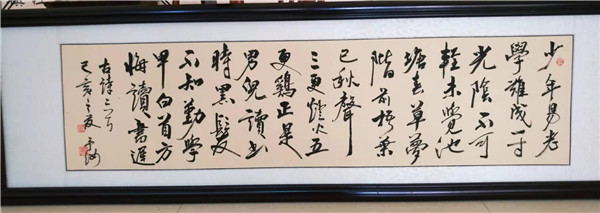 少年易老
學難成一寸
光陰不可
輕未覺池
塘春草夢
階前梧葉
已秋聲
三更燈火五
更鷄正是
男兒讀書
時黑髮
不知勤學
早白首方
悔讀書遲
古詩二首
己亥之夏